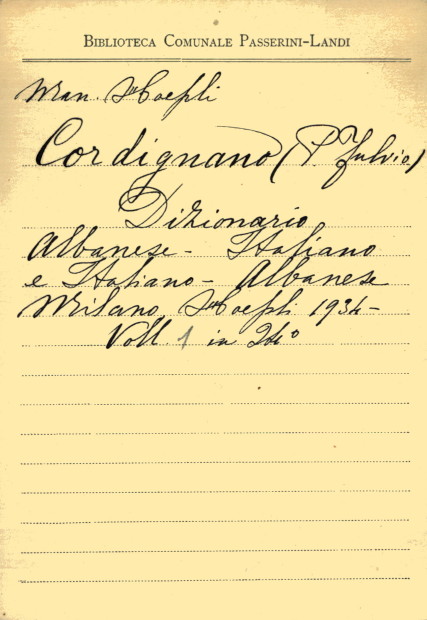 BIBLIOTECA COMUNALE PASSERINI-LANDI
Man. Hoepli
Cordignano (P. Fulvio)
Dizionario
Albanese - Italiano
e Italiano - Albanese
Milano, Hoepli 1934-
Voll. 1 in 24°